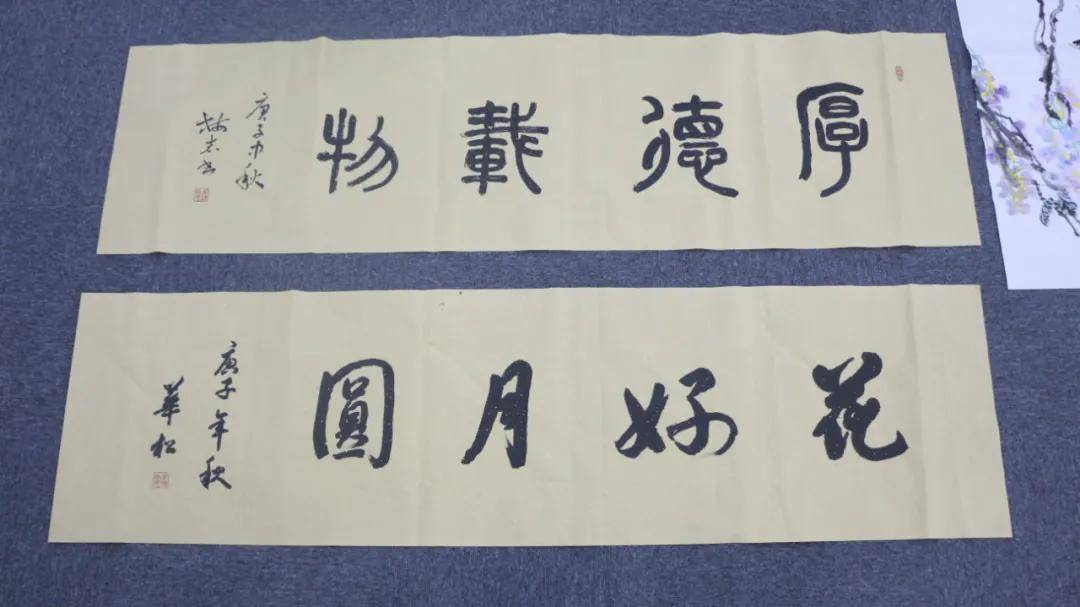 厚德載物
庚子中秋
志書
花好月圓
庚子年秋
華松